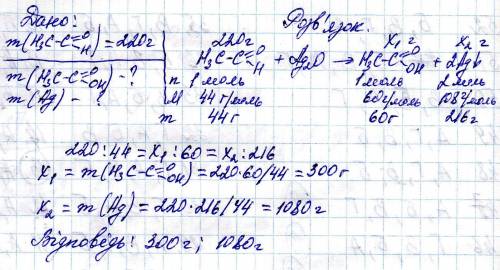 Дано: Розв'язок.
m(H₃C-C=O H)=220г
m(H₃C-C=O OH) - ?
m(Ag) - ?
220г X₁ г X₂ г
H₃C-C=O H + Ag₂O → H₃C-C=O OH + 2Ag↓
n 1 моль 1 моль 2 моль
M 44 г/моль 60г/моль 108г/моль
m 44г 60г 216г
220:44 = X₁:60 = X₂:216
X₁ = m(H₃C-C=O OH) = 220·60/44 = 300г
X₂ = m(Ag) = 220·216/44 = 1080г
Відповідь: 300г; 1080г